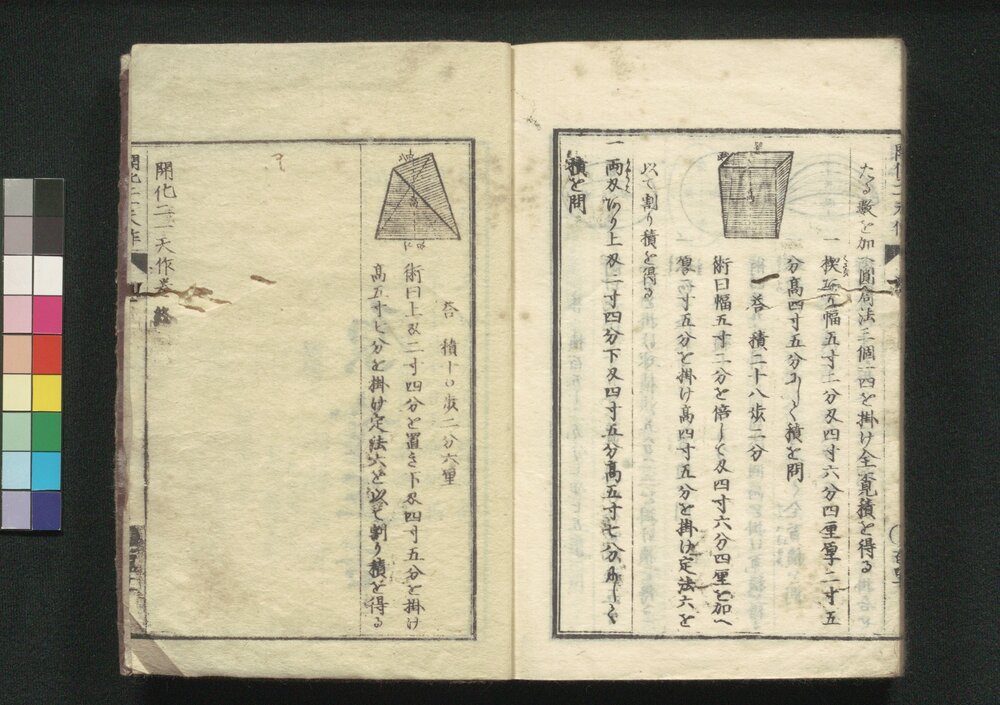 たる數を加へ圓弧法三個一四を掛け全覓積を得る
一 楔あり幅五寸二分刄四寸六分四厘厚二寸五
分高四寸五分にして積を問
答 積二十八歩二分
術曰幅五寸二分を倍して刄四寸六分四厘を加へ
厚二寸五分を掛け高四寸五分を掛け定法六を
以て割り積を得る
一 両刄あり上刄二寸四分下刄四寸五分高五寸七分にして
積を問
答 積十〇歩二分六厘
術曰上刄二寸四分を置き下刄四寸五分を掛け
高五寸七分を掛け定法六を以て割り積を得る
開化二一天作巻 終